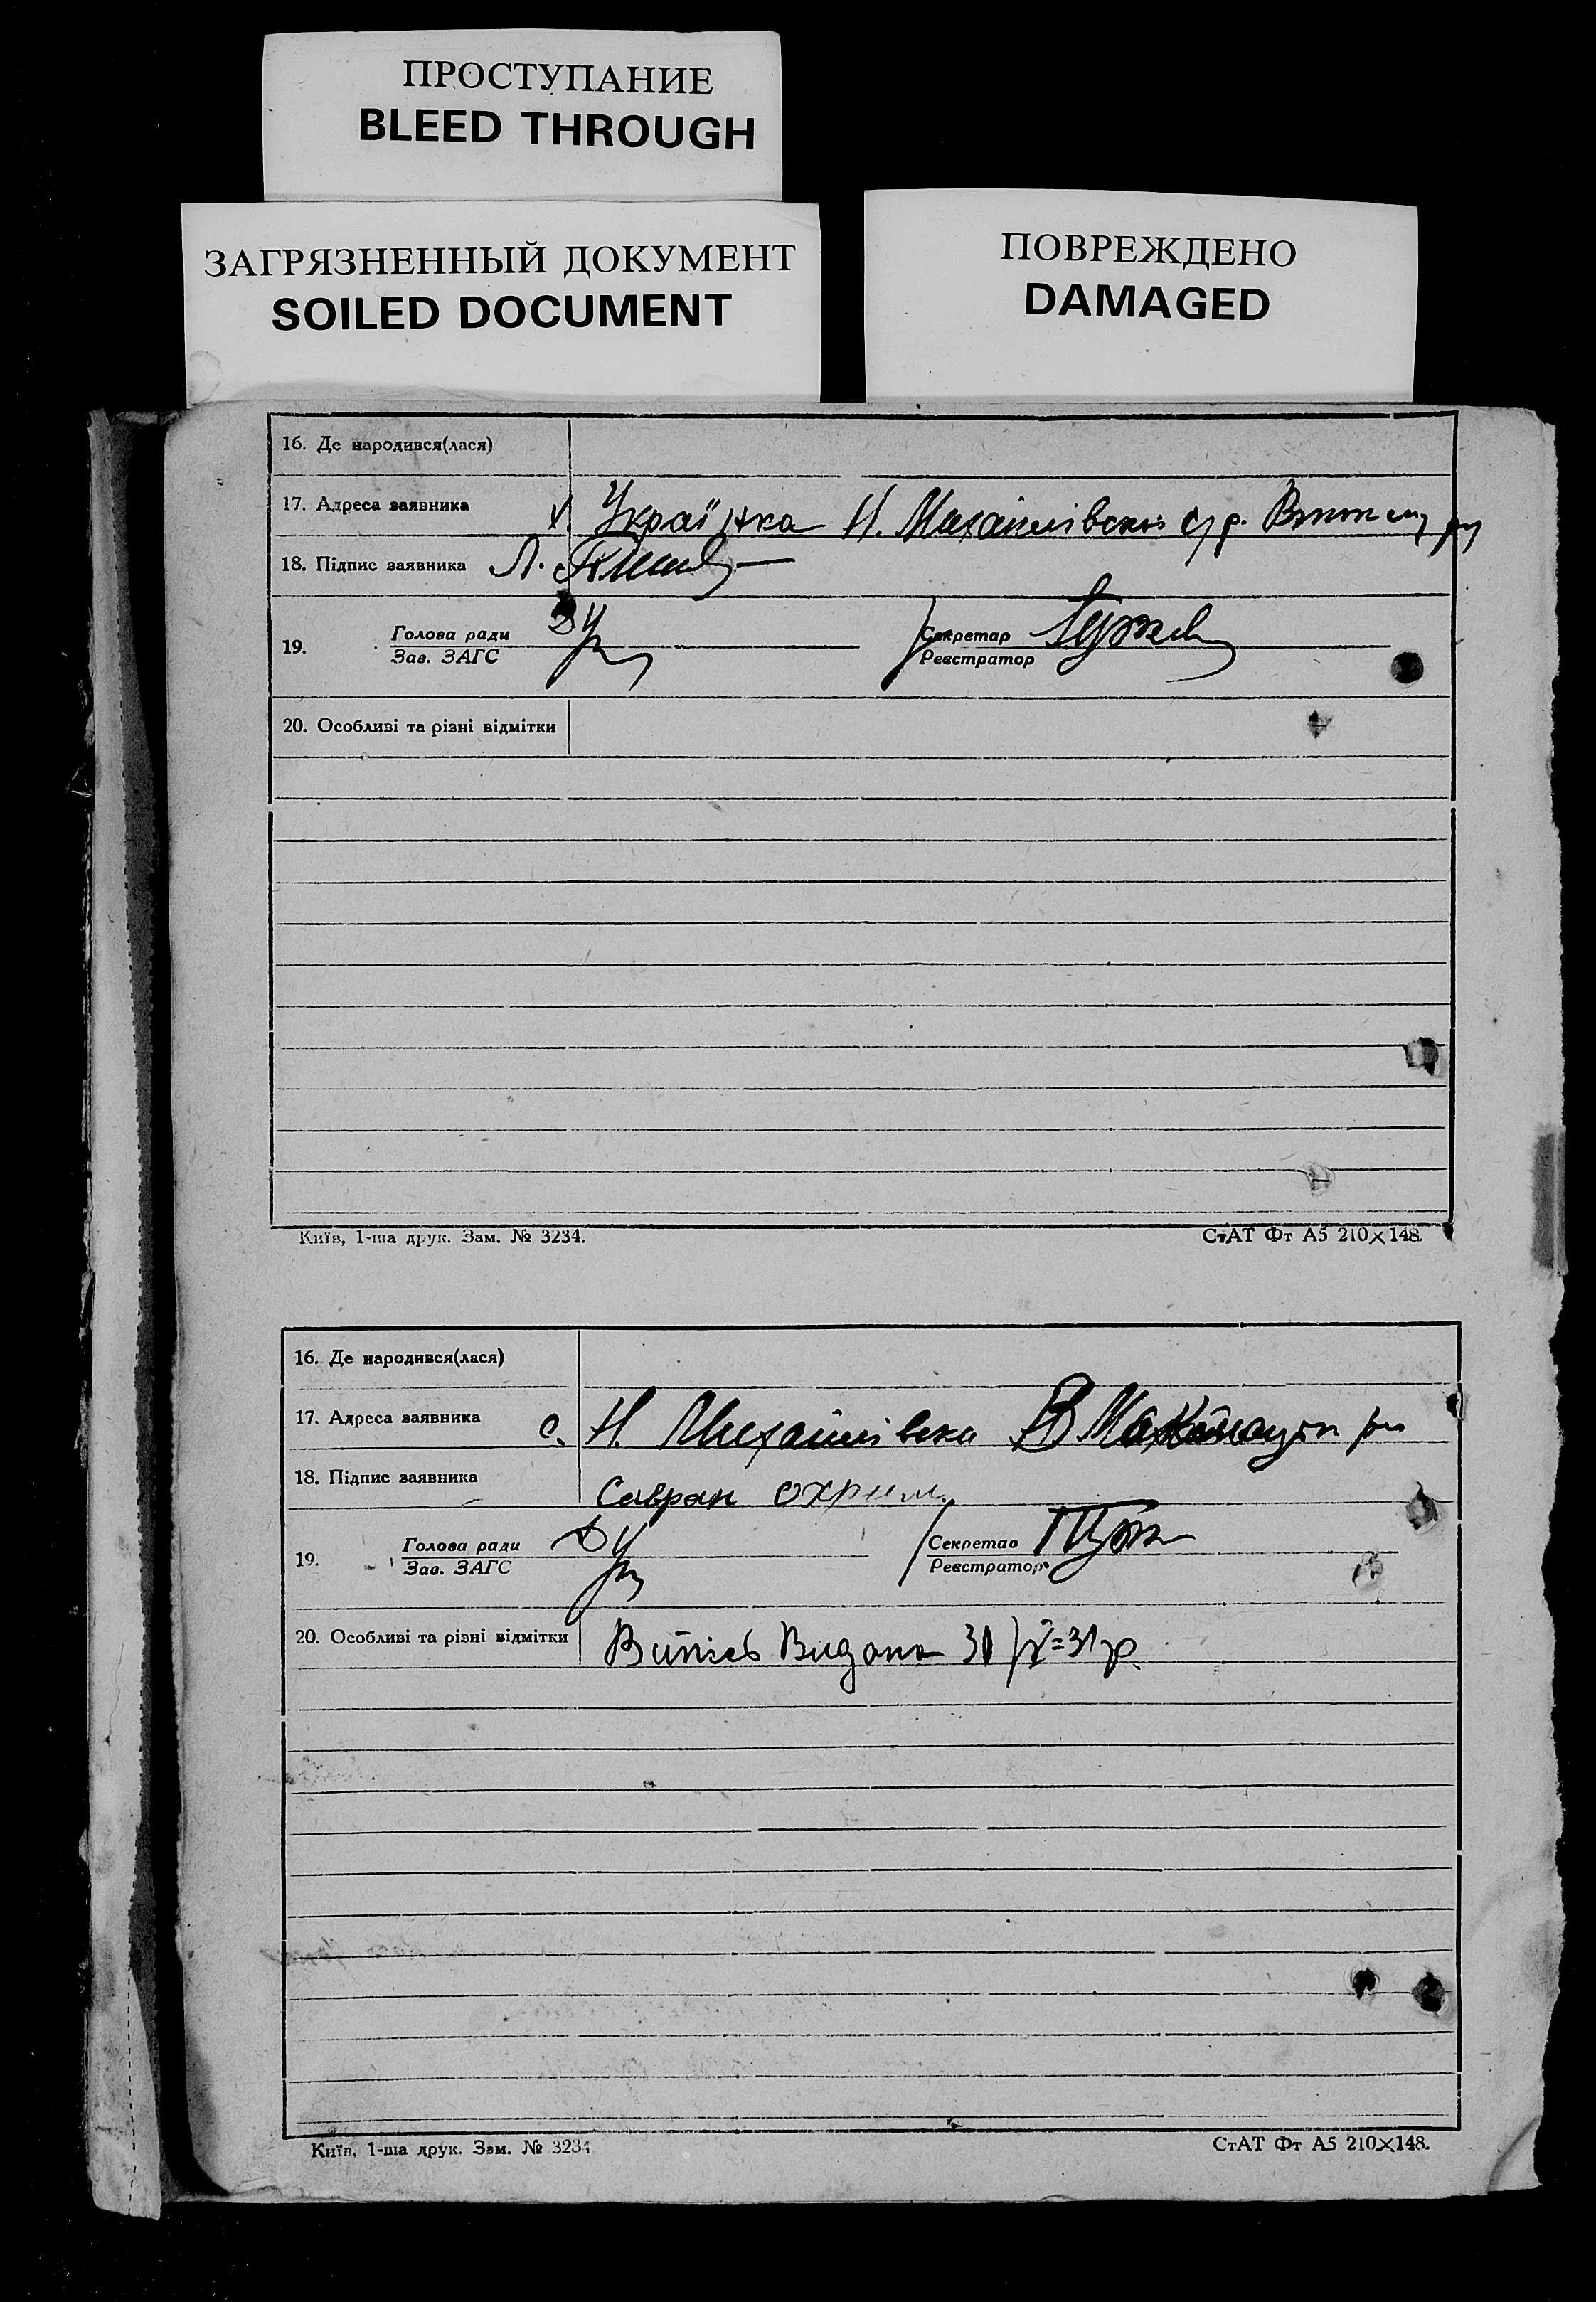 ПРОСТУПАНИЕ
BLEED THROUGH
ЗАГРЯЗНЕННЫЙ ДОКУМЕНТ
SOILED DOCUMENT
ПОВРЕЖДЕНО
DAMAGED
16. Де народився(лася)
17. Адреса заявника х. Українка Н. Михайлівської с/р.
18. Підпис заявника Л.
19. Голова ради Секретар
Зав. ЗАГС Реєстратор
20. Особливі та різні відмітки
Київ, 1-ша друк. Зам. № 3234. СтАТ Фт А5 210×148.
16. Де народився(лася)
17. Адреса заявника с. Н. Михайлівка
18. Підпис заявника Савран охрим
19. Голова ради Секретар
Зав. ЗАГС Реєстратор
20. Особливі та різні відмітки Витяг Видано 31р.
Київ, 1-ша друк. Зам. № 3234 СтАТ Фт А5 210×148.